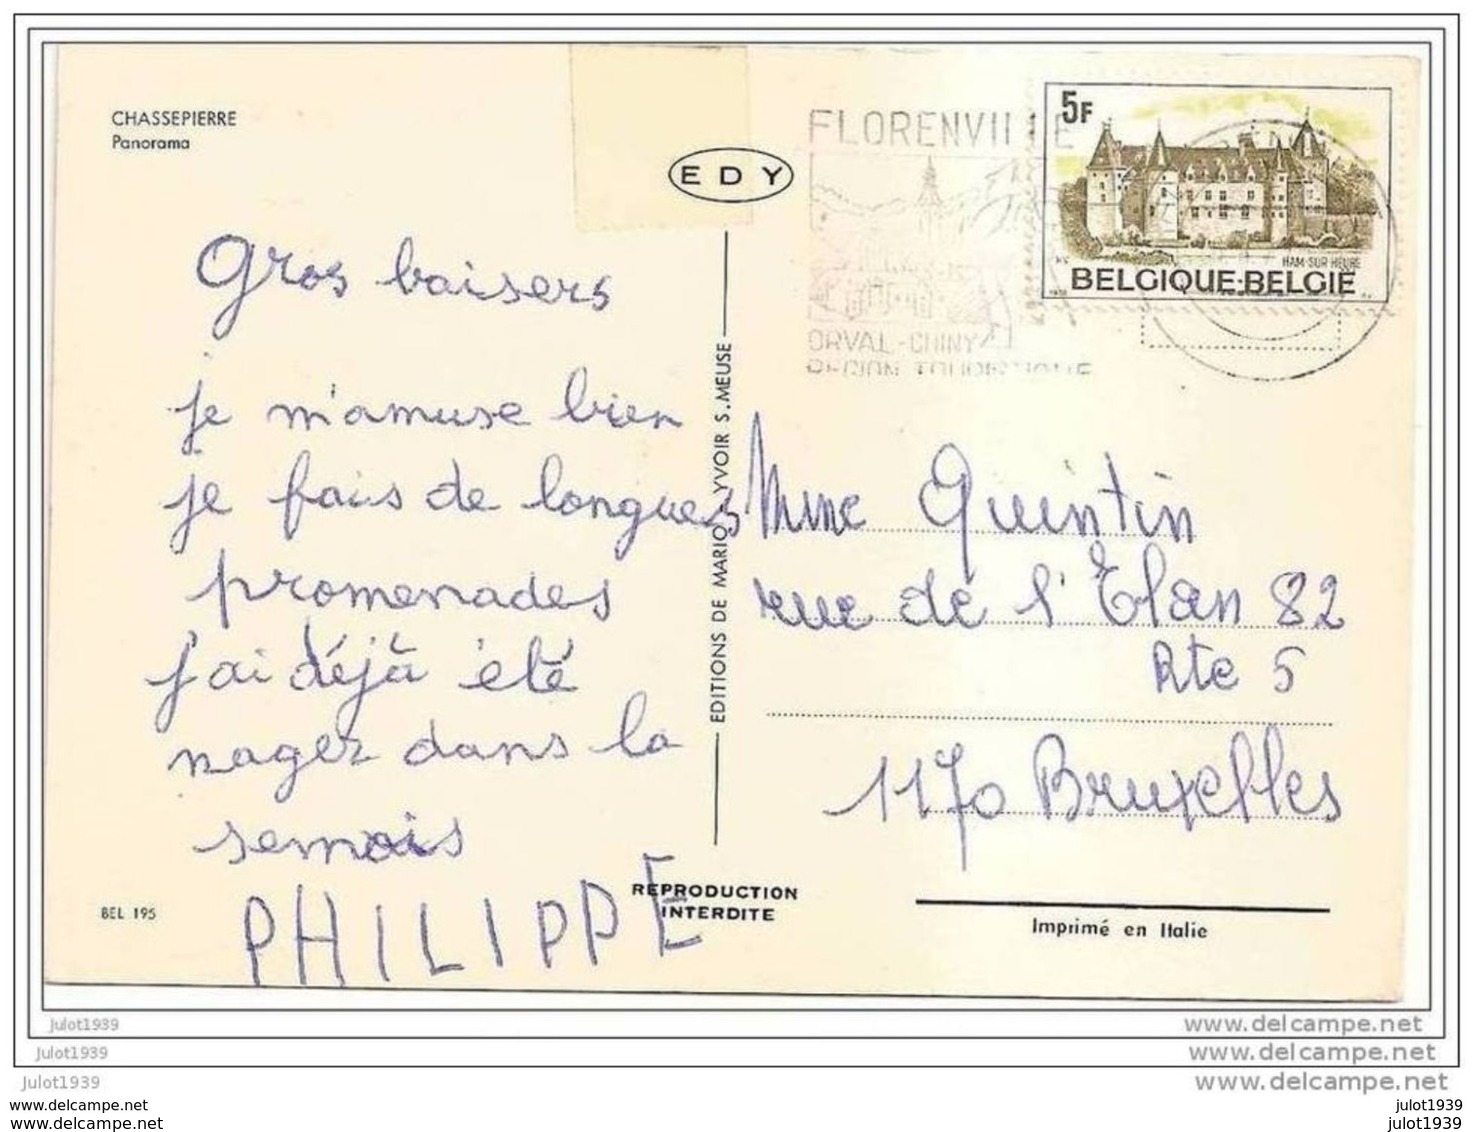 CHASSEPIERRE
Panorama
EDY
FLORENVILLE
ORVAL-CHINY
REGION TOURISTIQUE
5F
HAM-SUR-HEURE
BELGIQUE-BELGIE
Gros baisers
je m'amuse bien
je fais de longues
promenades
j'ai déjà été
nager dans la
semois
PHILIPPE
EDITIONS DE MARIO, YVOIR S. MEUSE
Mme Quintin
rue de l'Elan 82
Bte 5
1170 Bruxelles
BEL 195
REPRODUCTION
INTERDITE
Imprimé en Italie
julot1939
www.delcampe.net
julot1939
www.delcampe.net
julot1939
www.delcampe.net
www.delcampe.net
julot1939
www.delcampe.net
julot1939